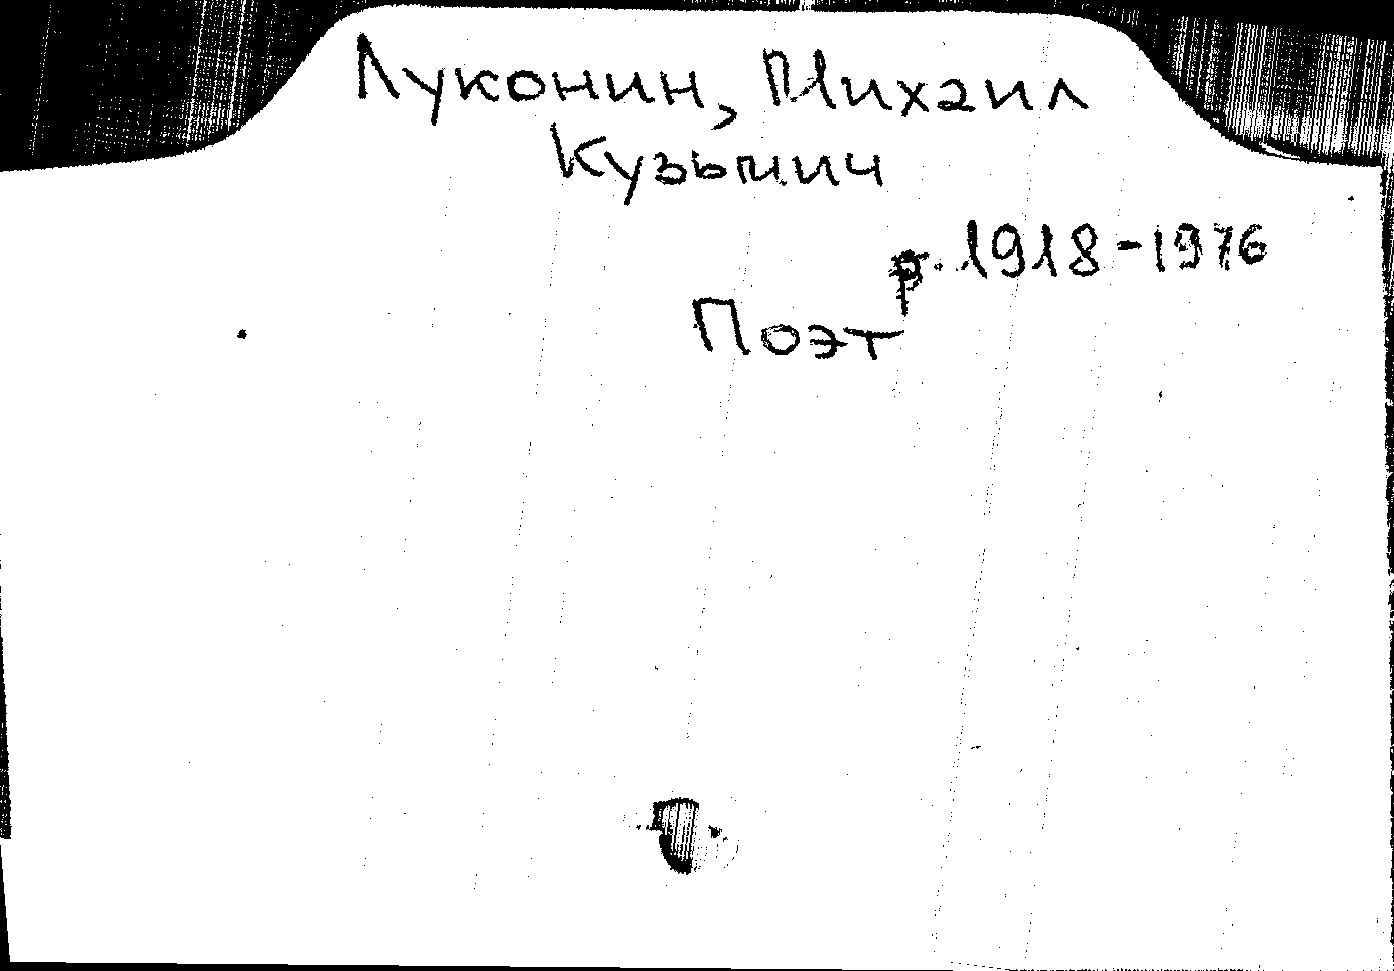 Луконин, Михаил
Кузьмич
р. 1918-1976
Поэт